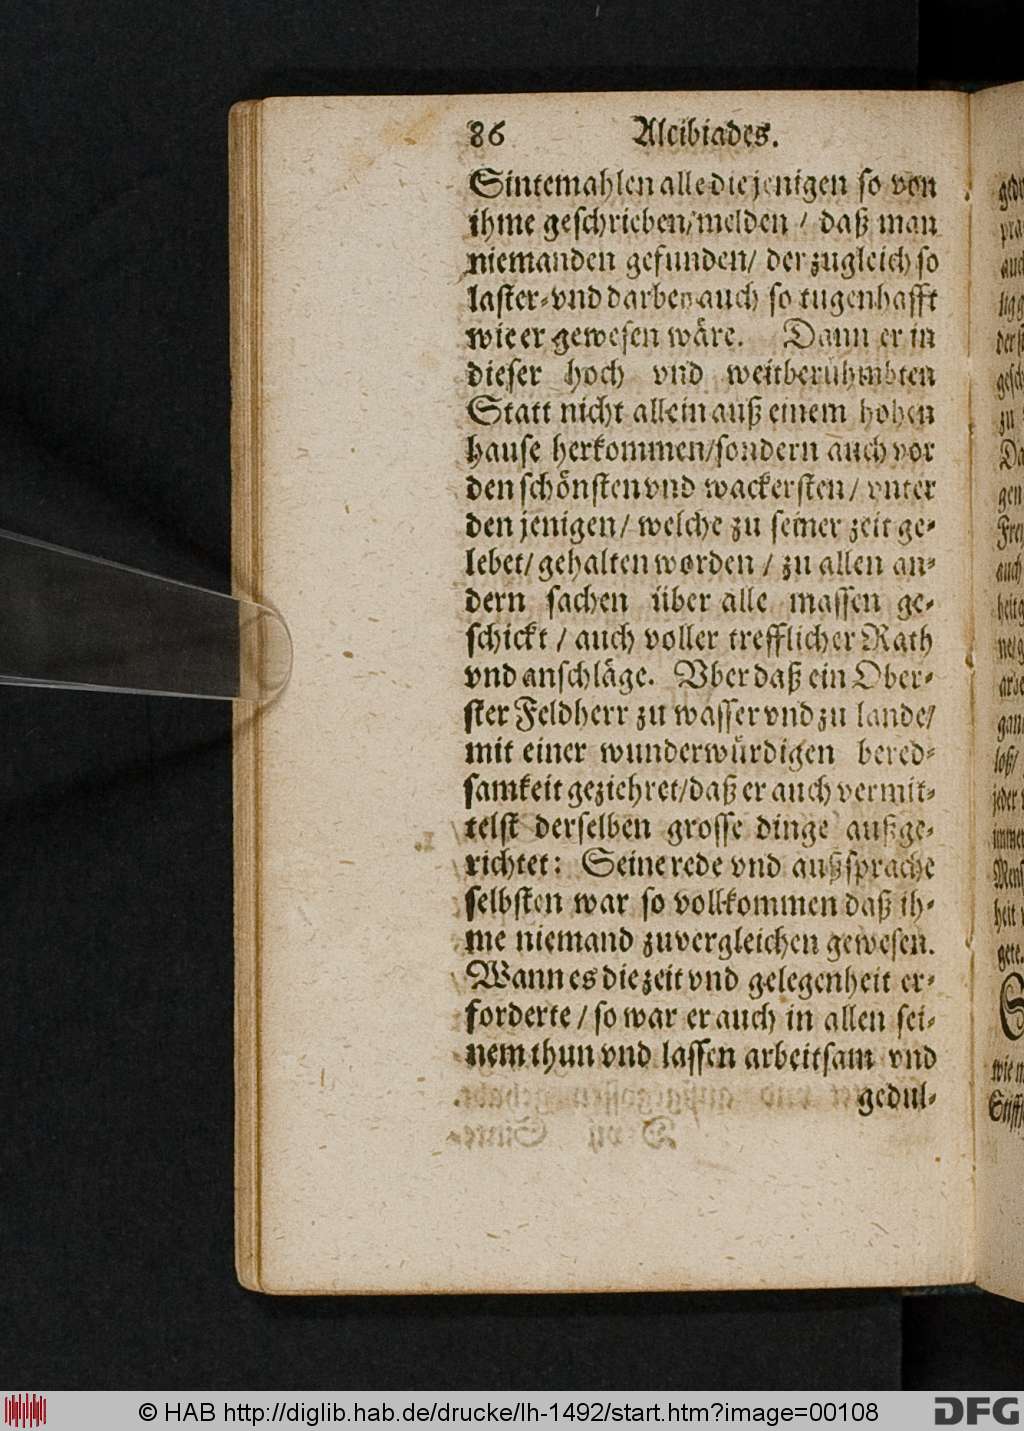 86 Alcibiades.
Sintemahlen alle die jenigen so von
ihme geschrieben/melden / daß man
niemanden gefunden/ der zugleich so
laster-vnd darbey auch so tugenhafft
wie er gewesen wäre. Dann er in
dieser hoch vnd weitberühmbten
Statt nicht allein auß einem hohen
hause herkommen/sondern auch vor
den schönsten vnd wackersten/ vnter
den jenigen/ welche zu seiner zeit ge-
lebet/ gehalten worden / zu allen an-
dern sachen über alle massen ge-
schickt / auch voller trefflicher Rath
vnd anschläge. Vber daß ein Ober-
ster Feldherr zu wasser vnd zu lande/
mit einer wunderwürdigen bered-
samkeit geziehret/daß er auch vermit-
telst derselben grosse dinge außge-
richtet: Seine rede vnd außsprache
selbsten war so vollkommen daß ih-
me niemand zuvergleichen gewesen.
Wann es die zeit vnd gelegenheit er-
forderte / so war er auch in allen sei-
nem thun vnd lassen arbeitsam vnd
gedul-
© HAB http://diglib.hab.de/drucke/lh-1492/start.htm?image=00108
DFG